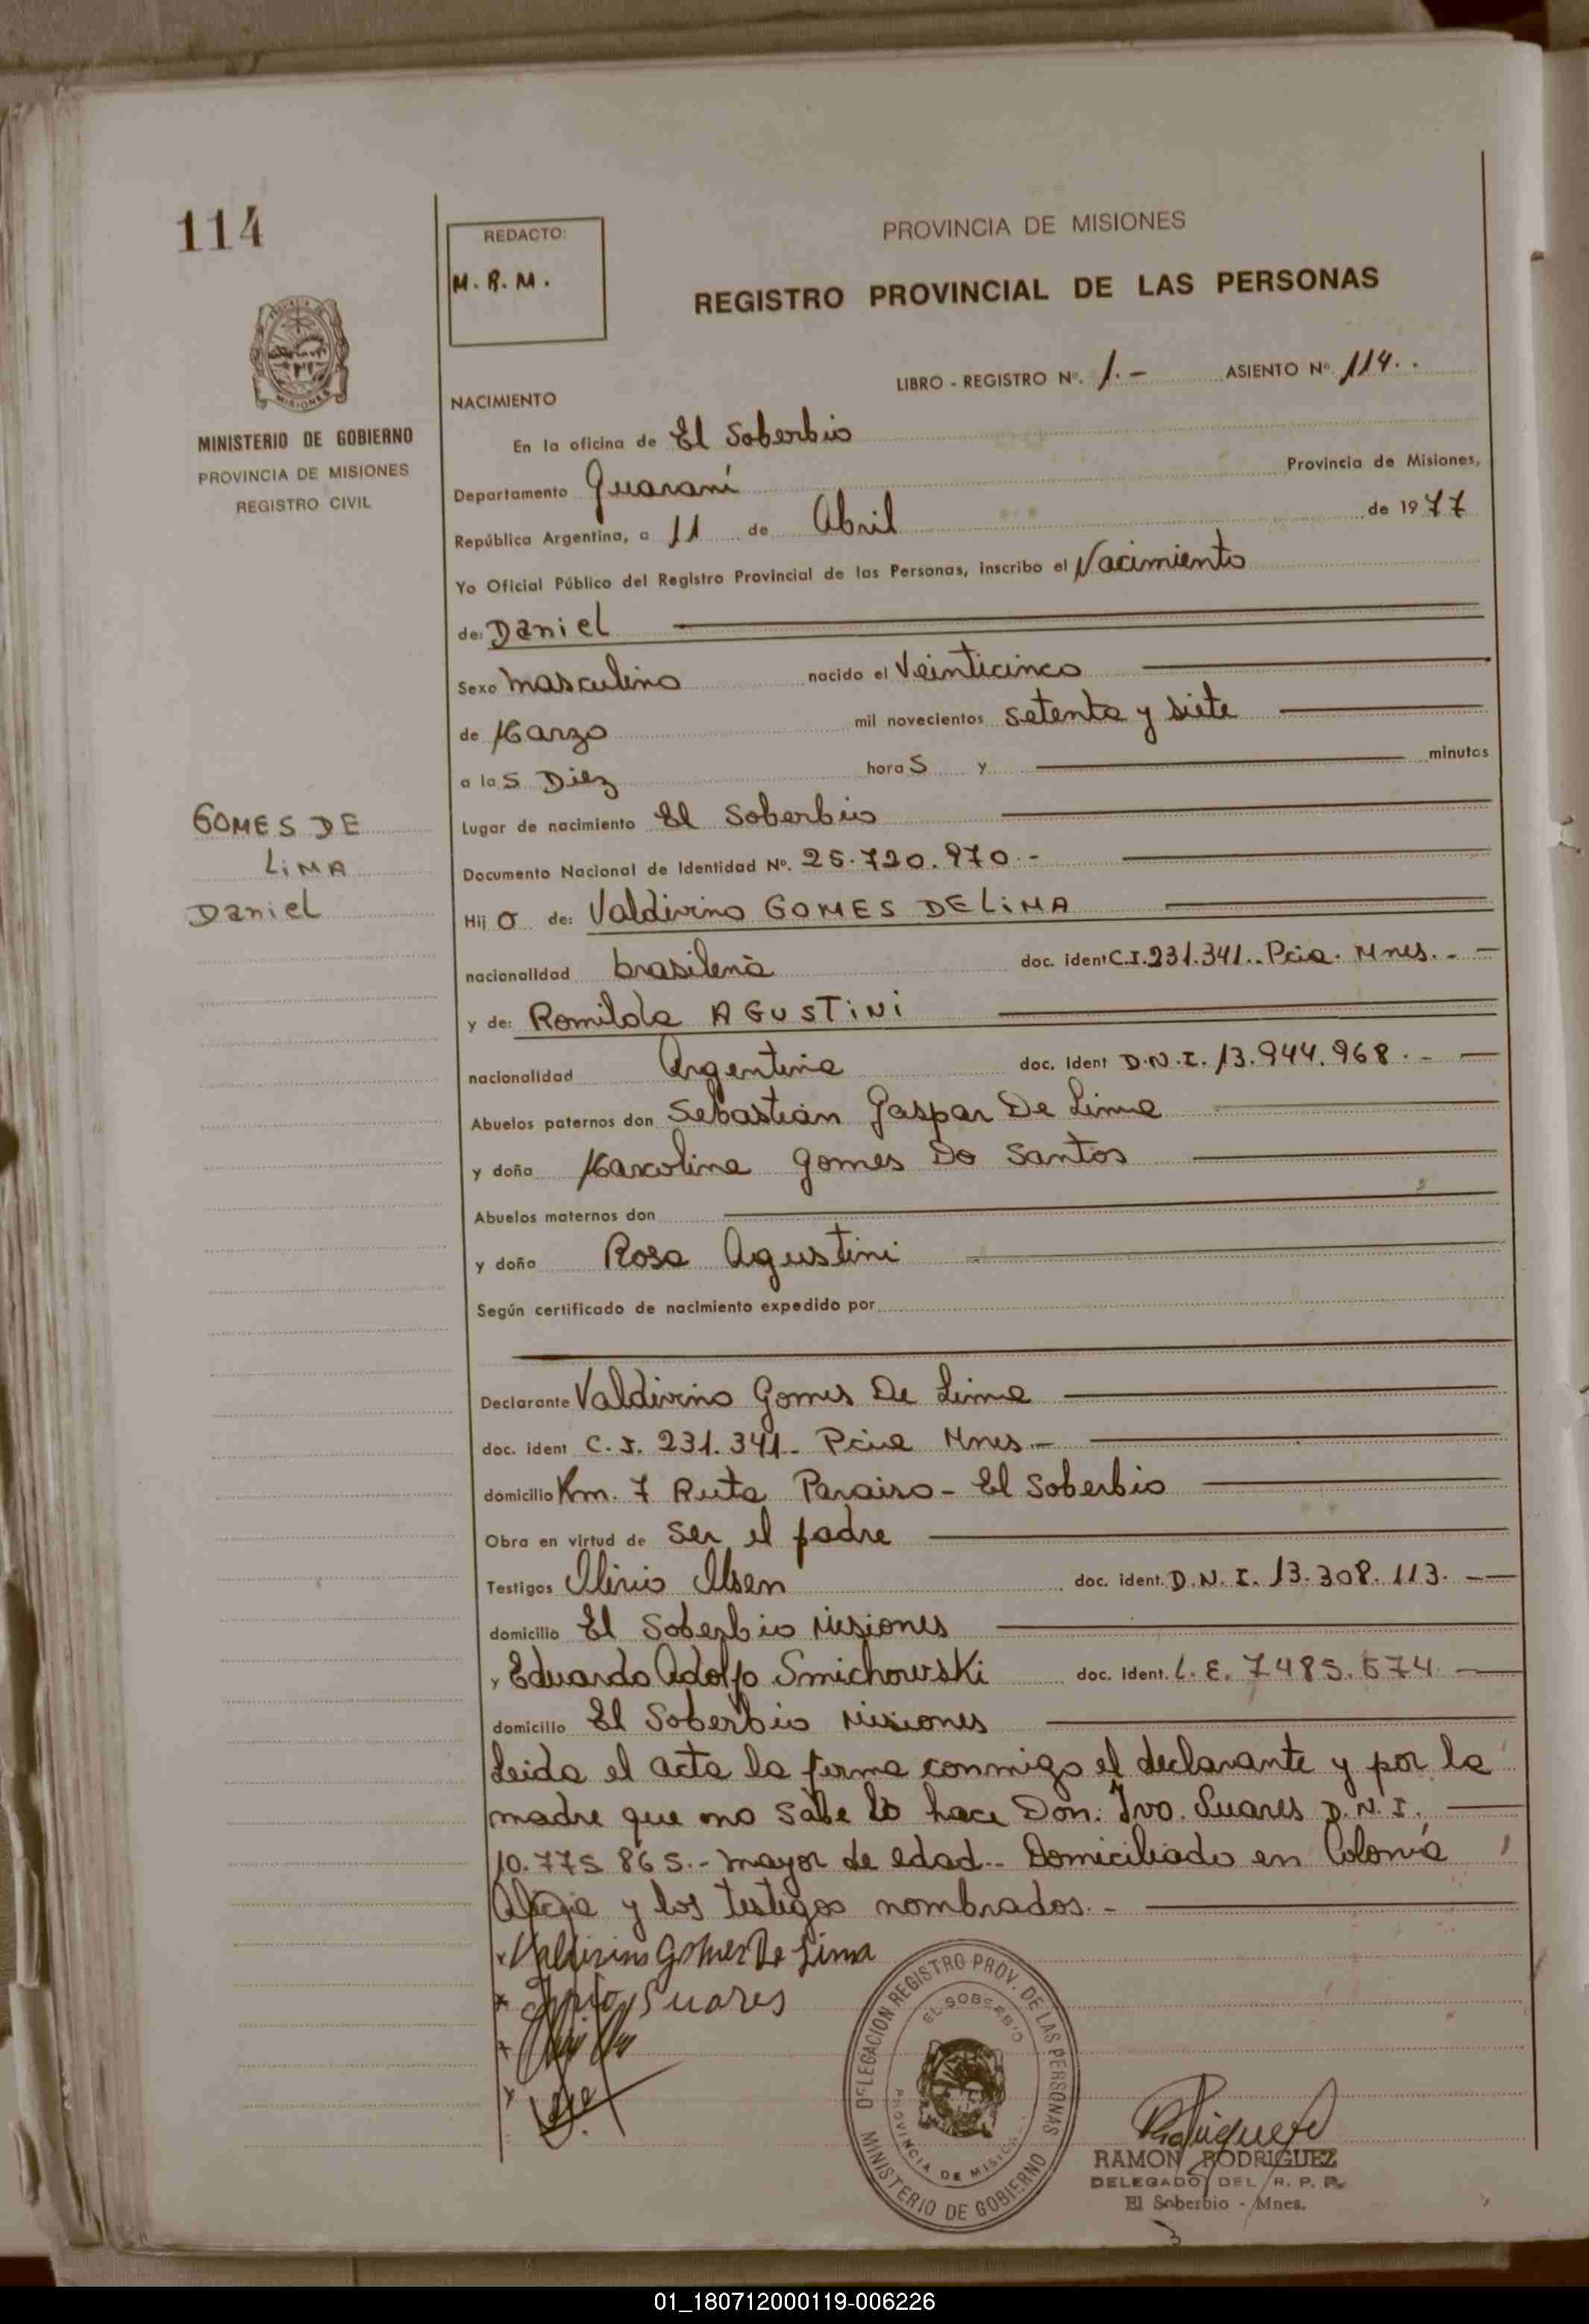 114
REDACTO:
M. R. M.
PROVINCIA DE MISIONES
REGISTRO PROVINCIAL DE LAS PERSONAS
MINISTERIO DE GOBIERNO
PROVINCIA DE MISIONES
REGISTRO CIVIL
LIBRO - REGISTRO Nº. 1.- ASIENTO Nº 114..
NACIMIENTO
En la oficina de El Soberbio
Departamento Guaraní Provincia de Misiones,
República Argentina, a 11 de Abril de 1977
Yo Oficial Público del Registro Provincial de las Personas, inscribo el Nacimiento
de: Daniel
Sexo masculino nacido el Veinticinco
de Marzo mil novecientos setenta y siete
a las Diez horas y minutos
Lugar de nacimiento El Soberbio
GOMES DE
LiMA
Daniel
Documento Nacional de Identidad Nº. 25.720.970.-
Hijo de: Valdivino GOMES DE LiMA
nacionalidad brasilena doc. ident C.I. 231.341.. Pcia. Mnes.-
y de: Romilda AGUSTiNi
nacionalidad Argentina doc. ident D.N.I. 13.944.968.-
Abuelos paternos don Sebastián Gaspar De Lima
y doña Marcolina Gomes Do Santos
Abuelos maternos don
y doña Rosa Agustini
Según certificado de nacimiento expedido por
Declarante Valdivino Gomes De Lima
doc. ident C.I. 231.341- Pcia Mnes.-
domicilio Km. 7 Ruta Paraiso - El Soberbio
Obra en virtud de ser el padre
Testigos Olsen doc. ident. D.N.I. 13.308.113.-
domicilio El Soberbio Misiones
y Eduardo Adolfo Smichowski doc. ident. L.E. 7485.674
domicilio El Soberbio Misiones
Leida el acta la firma conmigo el declarante y por la
madre que no sabe lo hace Don: Ivo Suares D.N.I.
10.775 865.- mayor de edad.- Domiciliado en Colonia
y los testigos nombrados.-
Valdivino Gomes De Lima
Suares
DELEGACION REGISTRO PROV. DE LAS PERSONAS
EL SOBERBIO
PROVINCIA DE MISIONES
MINISTERIO DE GOBIERNO
RAMON RODRIGUEZ
DELEGADO DEL R. P. P.
El Soberbio - Mnes.
01_180712000119-006226